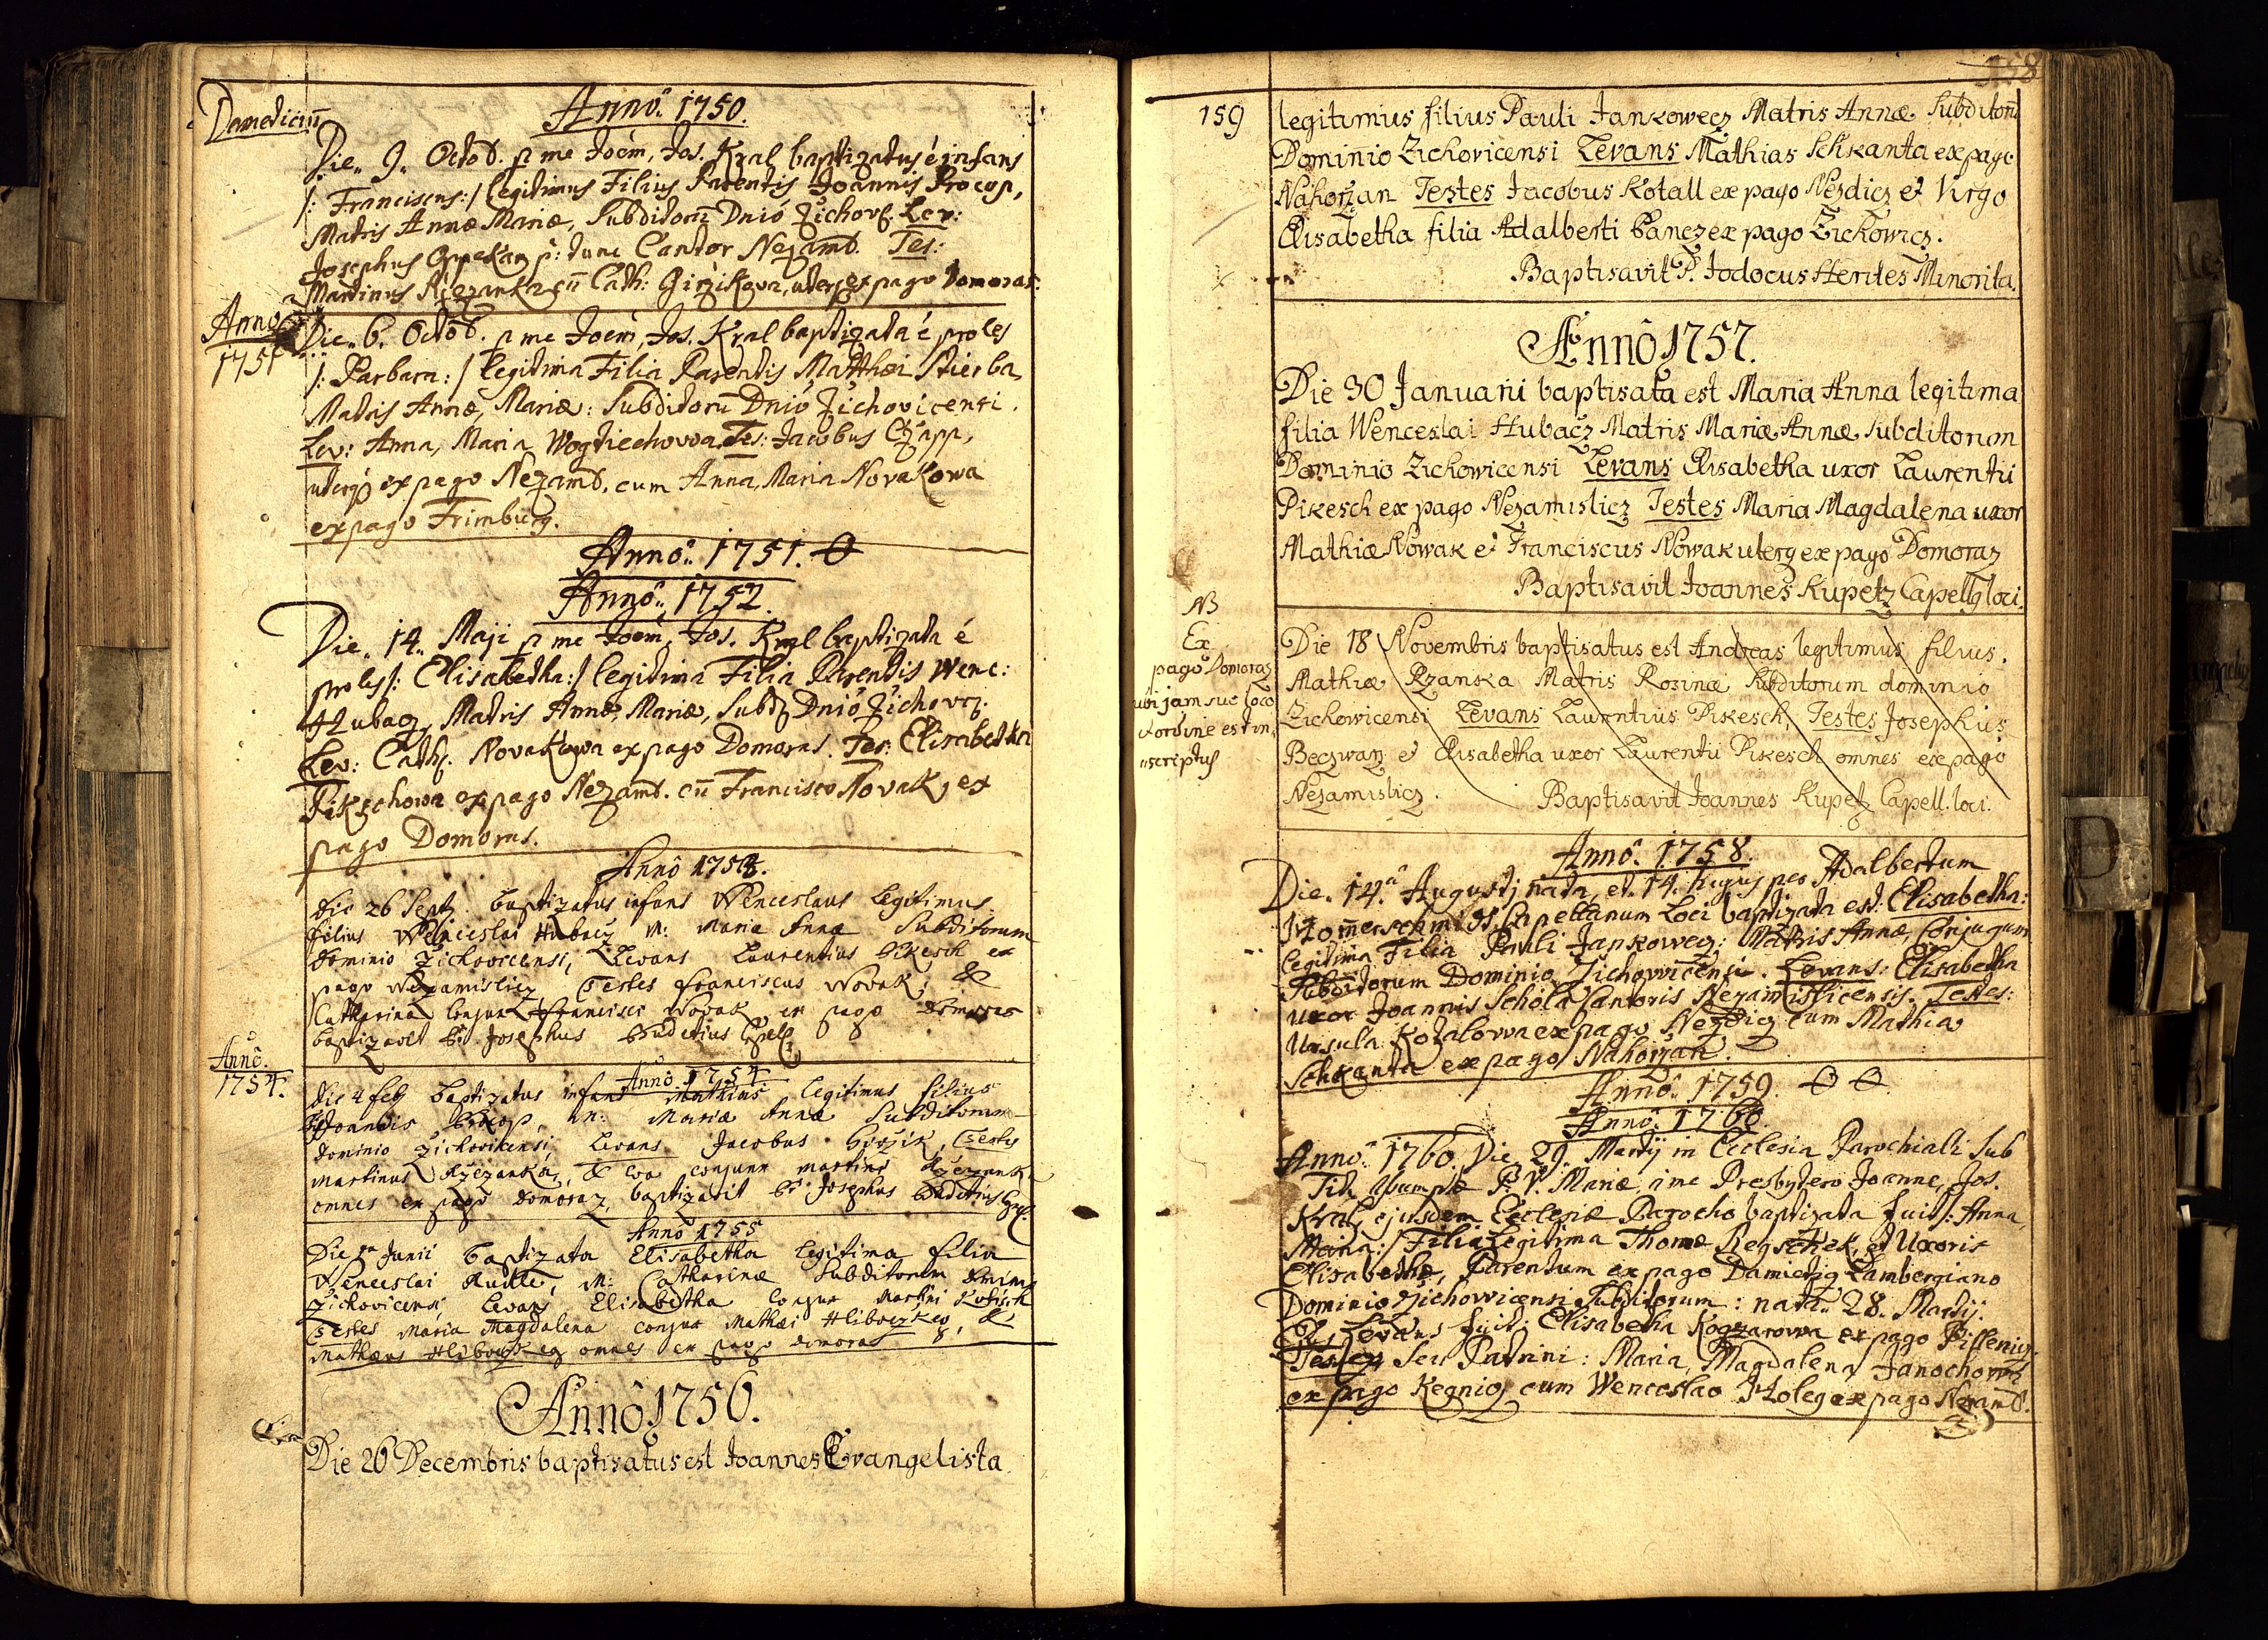 Annô. 1750.
Die. 9. Octob. p me Joem, Jos. Kral baptizatus é infans
/: Franciscus:/ legitimus Filius Parentis Joannis Procop,
Matris Annæ Mariæ, Subditoru Dnio Žichov. Lev:
Josephus p: tunc Cantor Nezamb. Tes:
Martinus cu Cath: Girzikova, uterq ex pago Domoras.
Anno
1751
Die. 6. Octob. p me Joem, Jos. Kral baptizata é proles
/: Barbara:/ legitima Filia Parentis Matthæi Stierba,
Matris Annæ, Mariæ: Subditoru Dnio Žichovicensi.
Lev: Anna, Maria Wogtiechowa, Tes: Jacobus Czapp,
uterq ex pago Nezamb, cum Anna, Maria Novakowa
ex pago Frimburg.
Annô. 1751. O
Annô. 1752.
Die. 14. Maji p me Joem, Jos. Kral baptizata é
proles /: Elisabetha:/ legitima Filia Parentis Wenc:
Hubacz, Matris Annæ, Mariæ, Subd. Dnio Žichov.
Lev: Cath. Novakowa ex pago Domoras. Tes: Elisabetha
Pikschowa ex pago Nezamb. cu Francisco Novak, ex
pago Domoras.
Annô 1753.
Die 26 Sept. baptizatus infans Wenceslaus legitimus
filius Wenceslai Hubacz M: Mariæ Annæ Subditorum
Dominio Žichovicensi, Levans Laurentius Pikesch ex
pago Nezamislicz, Testes Franciscus Novak, &
Catharina Conjux Francisci Novak, ex pago Domoras
baptizavit Josephus Capell.
Annô.
1754.
Annô. 1754
Die 4 feb baptizatus infans Mathias legitimus filius
Joannis Procop, M: Mariæ Annæ Subditorum
Dominio Žichovicensi, Levans Jacobus Girzik, Testes
Martinus Rzezanka, & Eva conjunx Martini Rzezanka
omnes ex pago Domoraz, baptizavit Josephus
Annô 1755
Die Junii baptizata Elisabetha legitima filia
Wenceslai M: Catharinæ Subditorum Dominio
Žichovicensi, Levans Elisabetha Conjux Martini
Testes Maria Magdalena conjux Mathæi &
Mathæus omnes ex pago Domoras
Annô 1756.
Die 26 Decembris baptisatus est Joannes Evangelista
158
159
legitimus filius Pauli Jankowecz Matris Annæ Subditoru
Dominio Zichovicensi Levans Mathias Schkanta ex pago
Nahorzan Testes Jacobus Kotall ex pago Nezdicz et Virgo
Elisabetha filia Adalberti Pancz ex pago Zichowicz.
Baptisavit P. Jodocus Herites Minorita.
Annô 1757.
Die 30 Januarii baptisata est Maria Anna legitima
filia Wenceslai Hubacz Matris Mariæ Annæ Subditorum
Dominio Zichowicensi Levans Elisabetha uxor Laurentii
Pikesch ex pago Nezamislicz Testes Maria Magdalena uxor
Mathiæ Nowak et Franciscus Nowak uterq ex pago Domoraz
Baptisavit Joannes Kupetz Capellg loci.
NB
Ex
pago Domoraz
ubi jam suo loco
et ordine est in,
scriptus
Die 18 Novembris baptisatus est Andreas legitimus filius.
Mathiæ Rzanska Matris Rosinæ Subditorum dominio
Zichowicensi Levans Laurentius Pikesch, Testes Josephus
Beczwarz et Elisabetha uxor Laurentii Pikesch omnes ex pago
Nezamislicz. Baptisavit Joannes Kupetz Capell. loci.
Annô. 1758.
Die. 14. Augusti nata, et. 14. hujus per Adalbertum
Capellanum Loci baptizata est: Elisabetha:
legitima Filia Pauli Jankowecz: Matris Annæ, Conjugum
Subditorum Dominio Žichowicensi. Levans: Elisabetha
uxor Joannis Schola Cantoris Nezamislicensis. Testes:
Ursula Kozalowa ex pago Nezdicz cum Mathia
Schkanta ex pago Nahorzan.
Annô. 1759. O O
Annô. 1760.
Annô. 1760. Die 29. Martij in Ecclesia Parochiali Sub
Tit. Assumptæ B. V. Mariæ, á me Presbytero Joanne, Jos.
Kral, ejusdem Ecclesiæ Parocho baptizata fuit /: Anna,
Maria:/ Filia legitima Thomæ et Uxoris
Elisabethæ, Parentum ex pago Damietig Lambergiano
Dominio Zichowicensi Subditorum: nata. 28. Martij:
Levans fuit: Elisabetha Kogzarowa ex pago
Testes Seu Patrini: Maria, Magdalena Janochowa
ex pago Kegnicz cum Wenceslao Holeg ex pago Nezamb.